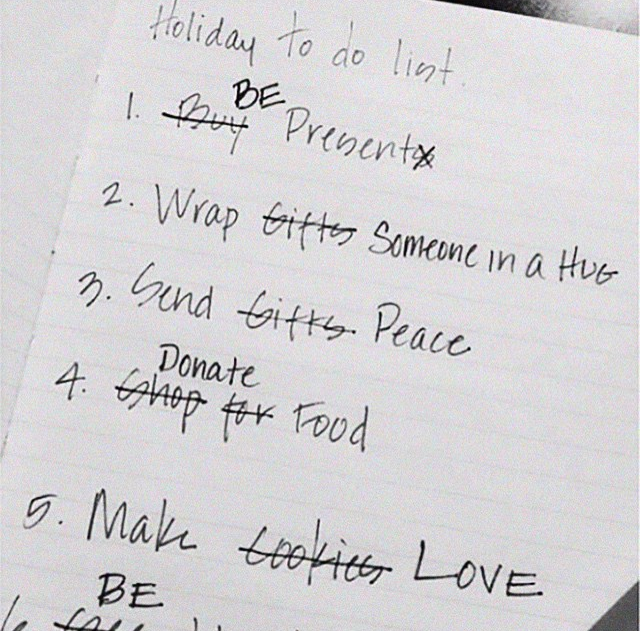 Holiday to do list.
1. Buy BE Presents
2. Wrap Gifts Someone in a HUG
3. Send Gifts Peace
4. Shop for Donate Food
5. Make Cookies LOVE
BE